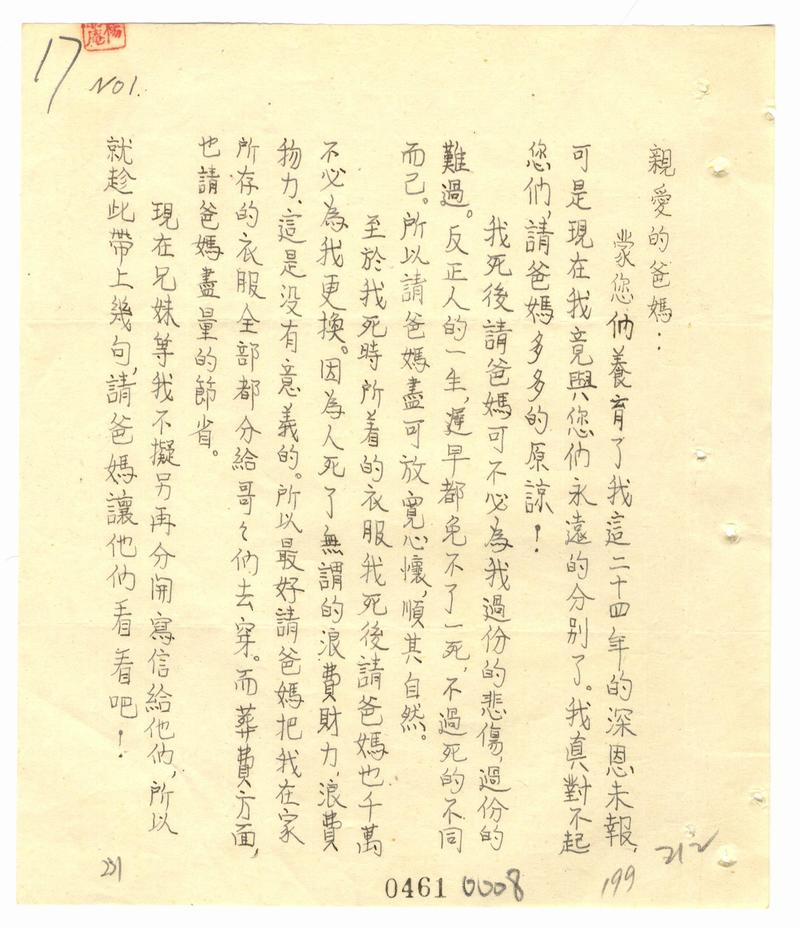 17
NO1.
親愛的爸媽：
蒙您们養育了我這二十四年的深恩未報，
可是現在我竟與您们永遠的分別了。我真對不起
您们，請爸媽多多的原諒！
我死後請爸媽可不必為我過份的悲傷，過份的
難過。反正人的一生，遲早都免不了一死，不過死的不同
而已。所以請爸媽盡可放寬心懷，順其自然。
至於我死時所着的衣服我死後請爸媽也千萬
不必為我更換。因為人死了無謂的浪費財力，浪費
物力，這是没有意義的。所以最好請爸媽把我在家
所存的衣服全部都分給哥々们去穿。而葬費方面，
也請爸媽盡量的節省。
現在兄妹等我不擬另再分開寫信給他们，所以
就趁此帶上幾句，請爸媽讓他们看看吧！
212
199
231
0461 0008